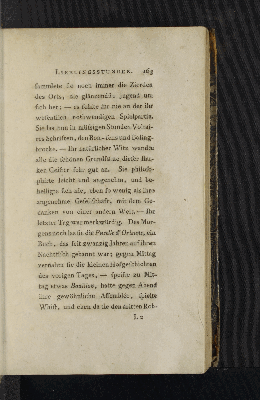 LIEBLINGSSTUNDEN. 163
sammlete sie noch immer die Zierden
des Orts, die glänzendste Jugend um
sich her; — es fehlte ihr nie an der ihr
wesentlich nothwendigen Spielpartie.
Sie las nun in müssigen Stunden Voltai-
res Schriften, den Rousseau und Boling-
brocke. — Ihr natürlicher Witz wandte
alle die schönen Grundsätze dieser star-
ken Geister sehr gut an. Sie philoso-
phirte leicht und angenehm, und be-
helligte sich nie, eben so wenig als ihre
angenehme Gesellschaft, mit dem Ge-
danken von einer andern Welt. — Ihr
letzter Tag war merkwürdig. Des Mor-
gens noch las sie die Pucelle d'Orleans, ein
Buch, das seit zwanzig Jahren auf ihrem
Nachttisch gebannt war; gegen Mittag
vernahm sie die kleinen Hofgeschichten
des vorigen Tages, — speiste zu Mit-
tag etwas Bouillon, hatte gegen Abend
ihre gewöhnliche Assemblée, spielte
Whist, und eben da sie den dritten Rob-
L 2